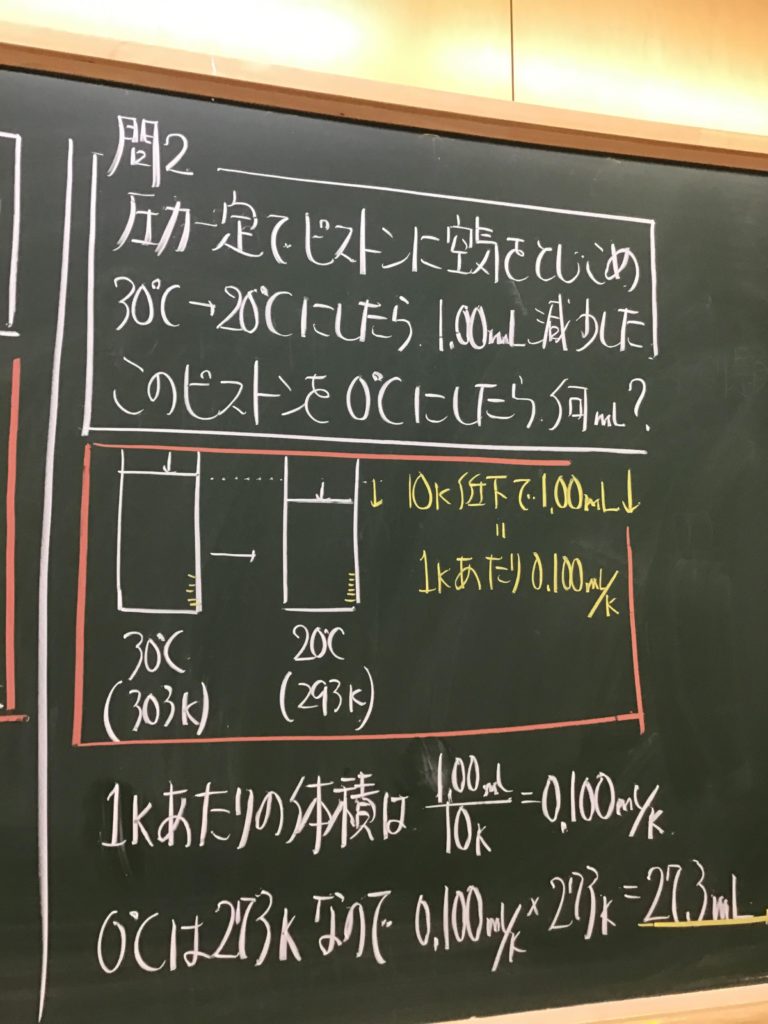 問2
圧力一定でピストンに空気をとじこめ
30℃→20℃にしたら 1.00mL減少した
このピストンを0℃にしたら何mL?
↓ 10K低下で1.00mL↓
=
1Kあたり0.100mL/K
30℃ → 20℃
(303K) (293K)
1Kあたりの体積は 1.00mL/10K = 0.100mL/K
0℃は273Kなので 0.100mL/K × 273K = 27.3mL